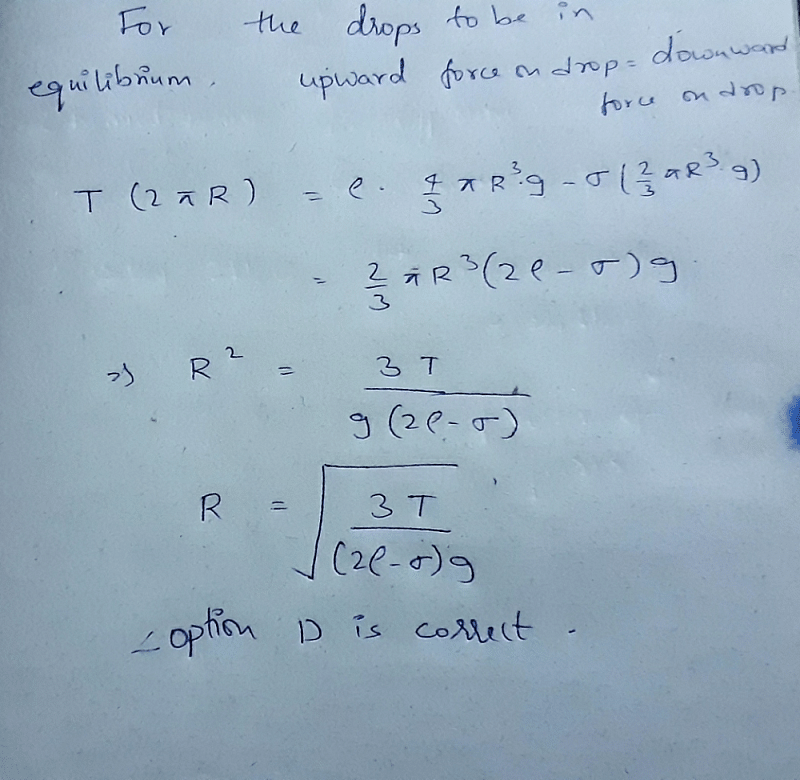 For the drops to be in
equilibrium, upward force on drop = downward
force on drop.
T (2πR) = ρ. 4/3 πR³.g - σ(2/3 πR³ g)
= 2/3 πR³(2ρ - σ)g
⇒ R² = 3T / g(2ρ-σ)
R = √(3T / (2ρ-σ)g)
∴ option D is correct.